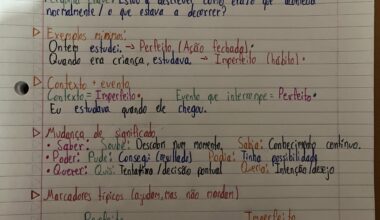 normalmente / o que estava a decorrer?
Exemplos mínimos:
Ontem estudei. → Perfeito (Ação fechada).
Quando era criança, estudava. → Imperfeito (hábito).
Contexto + evento
Contexto = Imperfeito. Evento que interrompe = Perfeito.
Eu estudava quando ele chegou.
Mudança de significado:
• Saber: Soube: Descobri num momento. Sabia: Conhecimento contínuo.
• Poder: Pude: Consegui (resultado) Podia: Tinha possibilidade
• Querer: Quis: Tentativa / decisão pontual Queria: Intenção/desejo
Marcadores típicos (ajudam, mas não mandam)
Perfeito Imperfeito